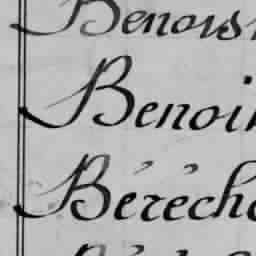 Benois
Benoi
Bérécho